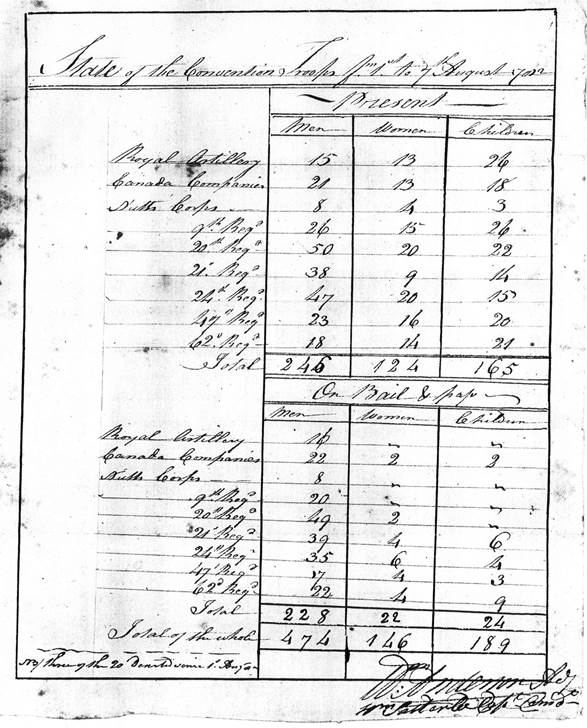 State of the Convention Troops from 1st to 7th August 1781
Present
Men Women Children
Royal Artillery 15 13 26
Canada Companies 21 13 18
Nutts Corps 8 4 3
9th Regt 26 15 26
20th Regt 50 20 22
21t Regt 38 9 14
24th Regt 47 20 15
47th Regt 23 16 20
62d Regt 18 14 21
Total 246 124 165
On Bail & pass
Men Women Children
Royal Artillery 16 " "
Canada Companies 22 2 2
Nutts Corps 8 " "
9th Regt 20 " "
20th Regt 49 2 "
21t Regt 39 4 6
24th Regt 35 6 4
47t Regt 17 4 3
62d Regt 22 4 9
Total 228 22 24
Total of the whole 474 146 189
three of the 20 Deserted since 1t
Wm Anderson Adj